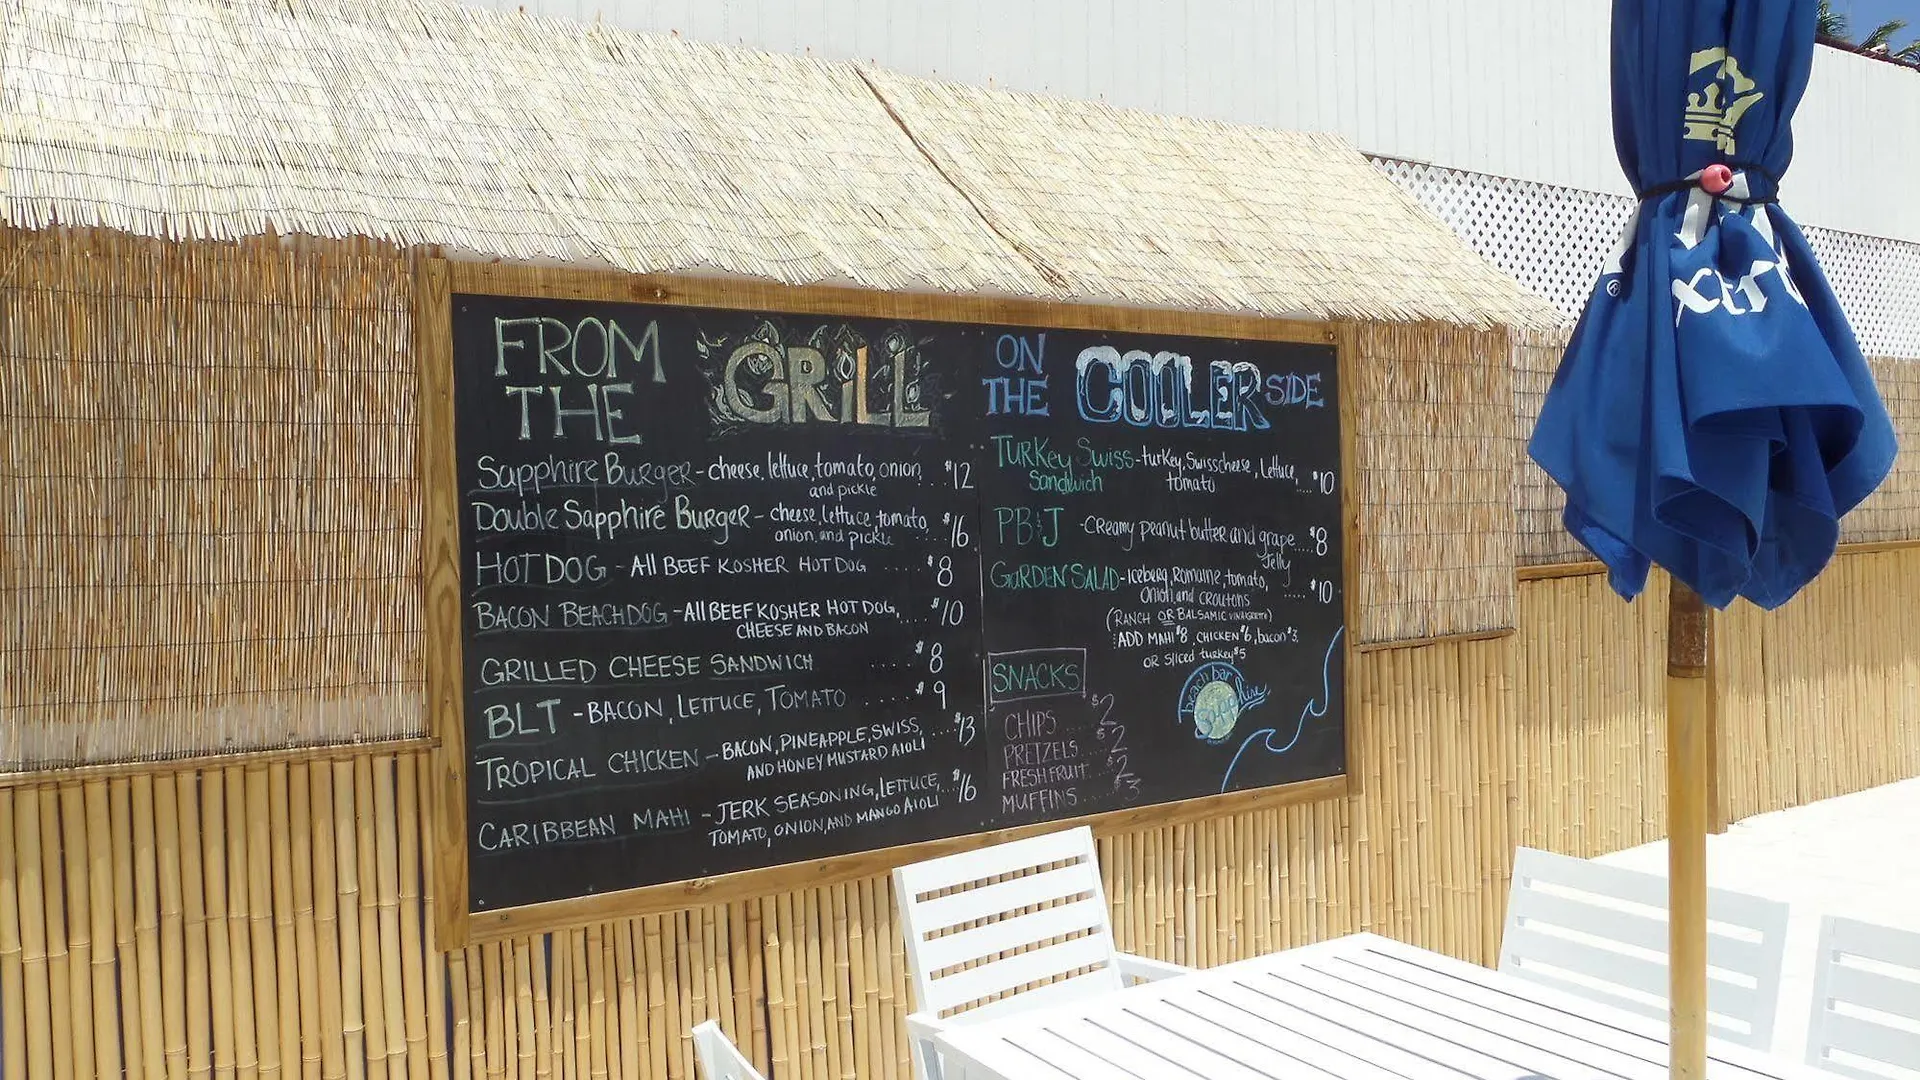 FROM THE GRILL
Sapphire Burger - cheese, lettuce, tomato, onion, and pickle ... $12
Double Sapphire Burger - cheese, lettuce, tomato, onion, and pickle .... $16
HOT DOG - All BEEF KOSHER HOT DOG .... $8
BACON BEACH DOG - All BEEF KOSHER HOT DOG, CHEESE AND BACON .... $10
GRILLED CHEESE SANDWICH .... $8
BLT - BACON, LETTUCE, TOMATO .... $9
TROPICAL CHICKEN - BACON, PINEAPPLE, SWISS, AND HONEY MUSTARD AIOLI .... $13
CARIBBEAN MAHI - JERK SEASONING, LETTUCE, TOMATO, ONION, AND MANGO AIOLI ... $16
ON THE COOLER SIDE
TURKey Swiss Sandwich - turkey, Swiss cheese, Lettuce, tomato .... $10
PB&J - Creamy peanut butter and grape Jelly .... $8
GARDEN SALAD - Iceberg, Romaine, tomato, Onion, and croutons ..... $10
(RANCH OR BALSAMIC VINAIGRETTE)
ADD MAHI $8, CHICKEN $6, bacon $3,
OR Sliced turkey $5
SNACKS
CHIPS .... $2
PRETZELS .... $2
FRESH FRUIT .. $2
MUFFINS .... $3
beach bar
Sapphire